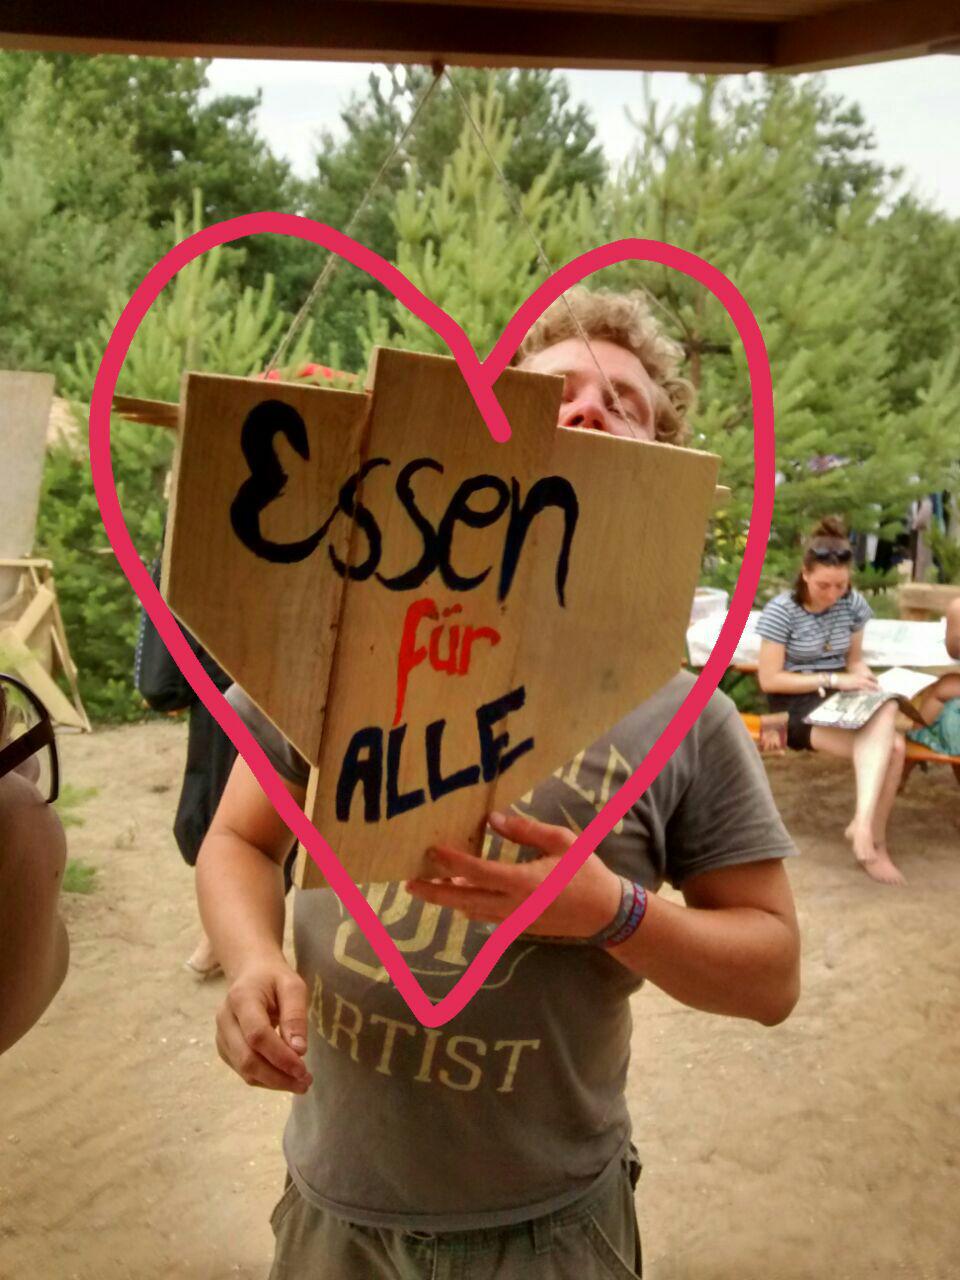 Essen
für
ALLE
ARTIST